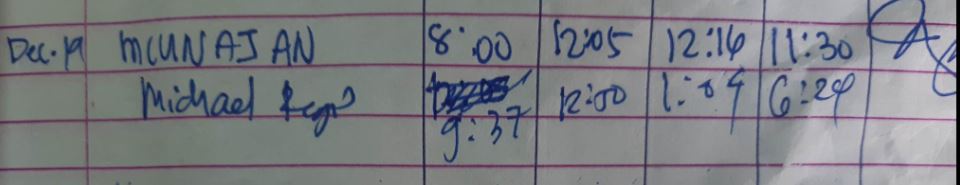 Dec. 19 MCUNAJAN 8:00 12:05 12:16 11:30
Michael 12:00 1:04 6:24
9:37